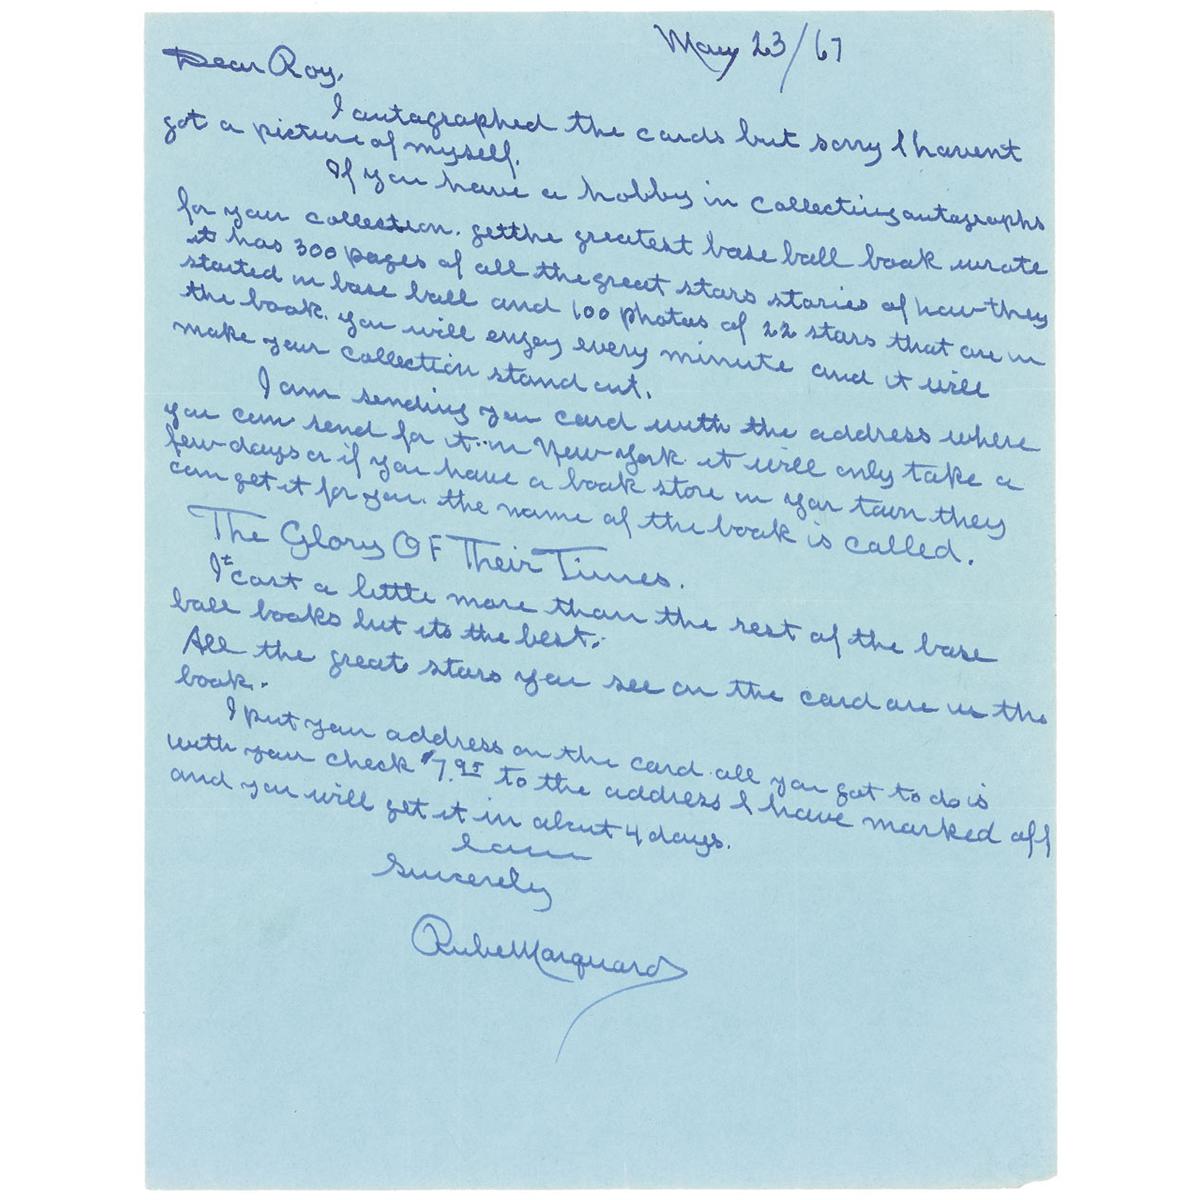 May 23/67
Dear Roy,
I autographed the cards but sorry I havent
got a picture of myself.
If you have a hobby in collecting autographs
for your collection. get the greatest base ball book wrote
it has 300 pages of all the great stars stories of how they
started in base ball and 100 photos of 22 stars that are in
the book. you will enjoy every minute and it will
make your collection stand out.
I am sending you card with the address where
you can send for it in New York it will only take a
few days or if you have a book store in your town they
can get it for you. the name of the book is called.
The Glory OF Their Times.
It cost a little more than the rest of the base
ball books but its the best.
All the great stars you see on the card are in the
book.
I put your address on the card all you got to do is
with your check $7.95 to the address I have marked off
and you will get it in about 4 days.
I am
Sincerely
Rube Marquard